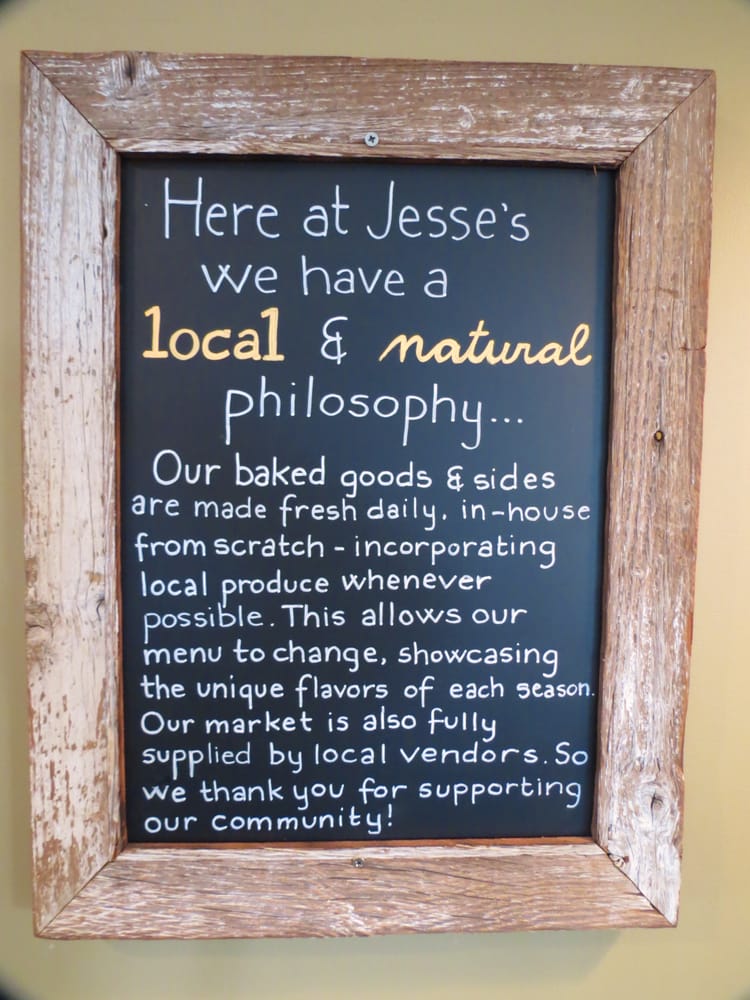 Here at Jesse's
we have a
local & natural
philosophy...
Our baked goods & sides
are made fresh daily, in-house
from scratch - incorporating
local produce whenever
possible. This allows our
menu to change, showcasing
the unique flavors of each season.
Our market is also fully
supplied by local vendors. So
we thank you for supporting
our community!